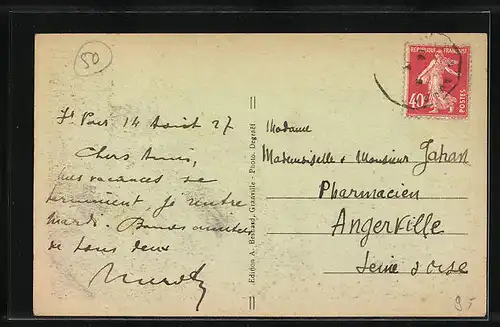 50
St Pair 14 Août 27
Chers Amis,
Mes vacances se
terminent, je rentre
mardi. Bonnes amitiés
de tous deux
Edition A. Besnard, Granville - Photo. Degrail
RÉPUBLIQUE FRANÇAISE
40c
POSTES
Madame
Mademoiselle & Monsieur Jahan
Pharmacien
Angerville
Seine & Oise
85